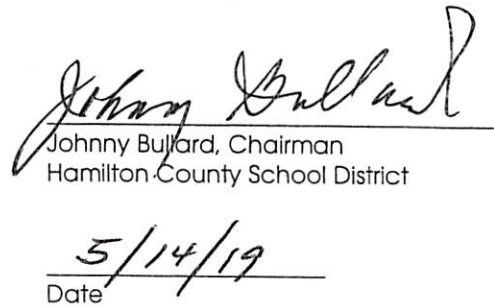 Johnny Bullard
Johnny Bullard, Chairman
Hamilton County School District
5/14/19
Date